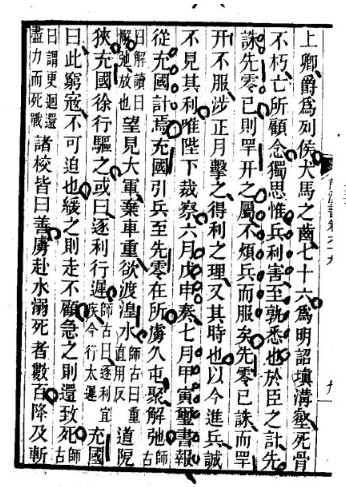 上卿爵爲列侯犬馬之齒七十六爲明詔塡溝壑死骨
不朽亡所顧念獨思惟兵利害至孰悉也於臣之計先
誅先零已則罕幵之屬不煩兵而服矣先零已誅而罕
幵不服涉正月擊之得利之理又其時也以今進兵誠
不見其利唯陛下裁察六月戊申奏七月甲寅璽書報
從充國計焉充國引兵至先零在所虜久屯聚解弛師古
曰解讀曰
懈弛放也望見大軍棄車重欲渡湟水師古曰重
音直用反道阸
狹充國徐行驅之或曰逐利行遲師古曰逐利宜
疾今行太遲充國
曰此窮寇不可迫也緩之則走不顧急之則還致死師古
曰謂更迴還
盡力而死戰諸校皆曰善虜赴水溺死者數百降及斬